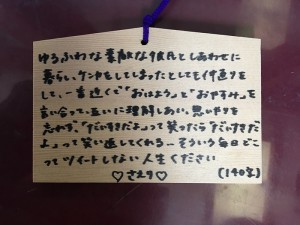 ゆるふわな素敵な彼氏としあわせに
暮らし、ケンカをしてしまったとしても仲直りを
して、一番近くで「おはよう」と「おやすみ」を
言い合って、互いに理解しあい、思いやりを
忘れず、「だいすきだよ」って笑ったら「だいすきだ
よ」って笑い返してくれる…そういう毎日どこ
ってツイートしない人生ください
♡さえり♡ (140字)